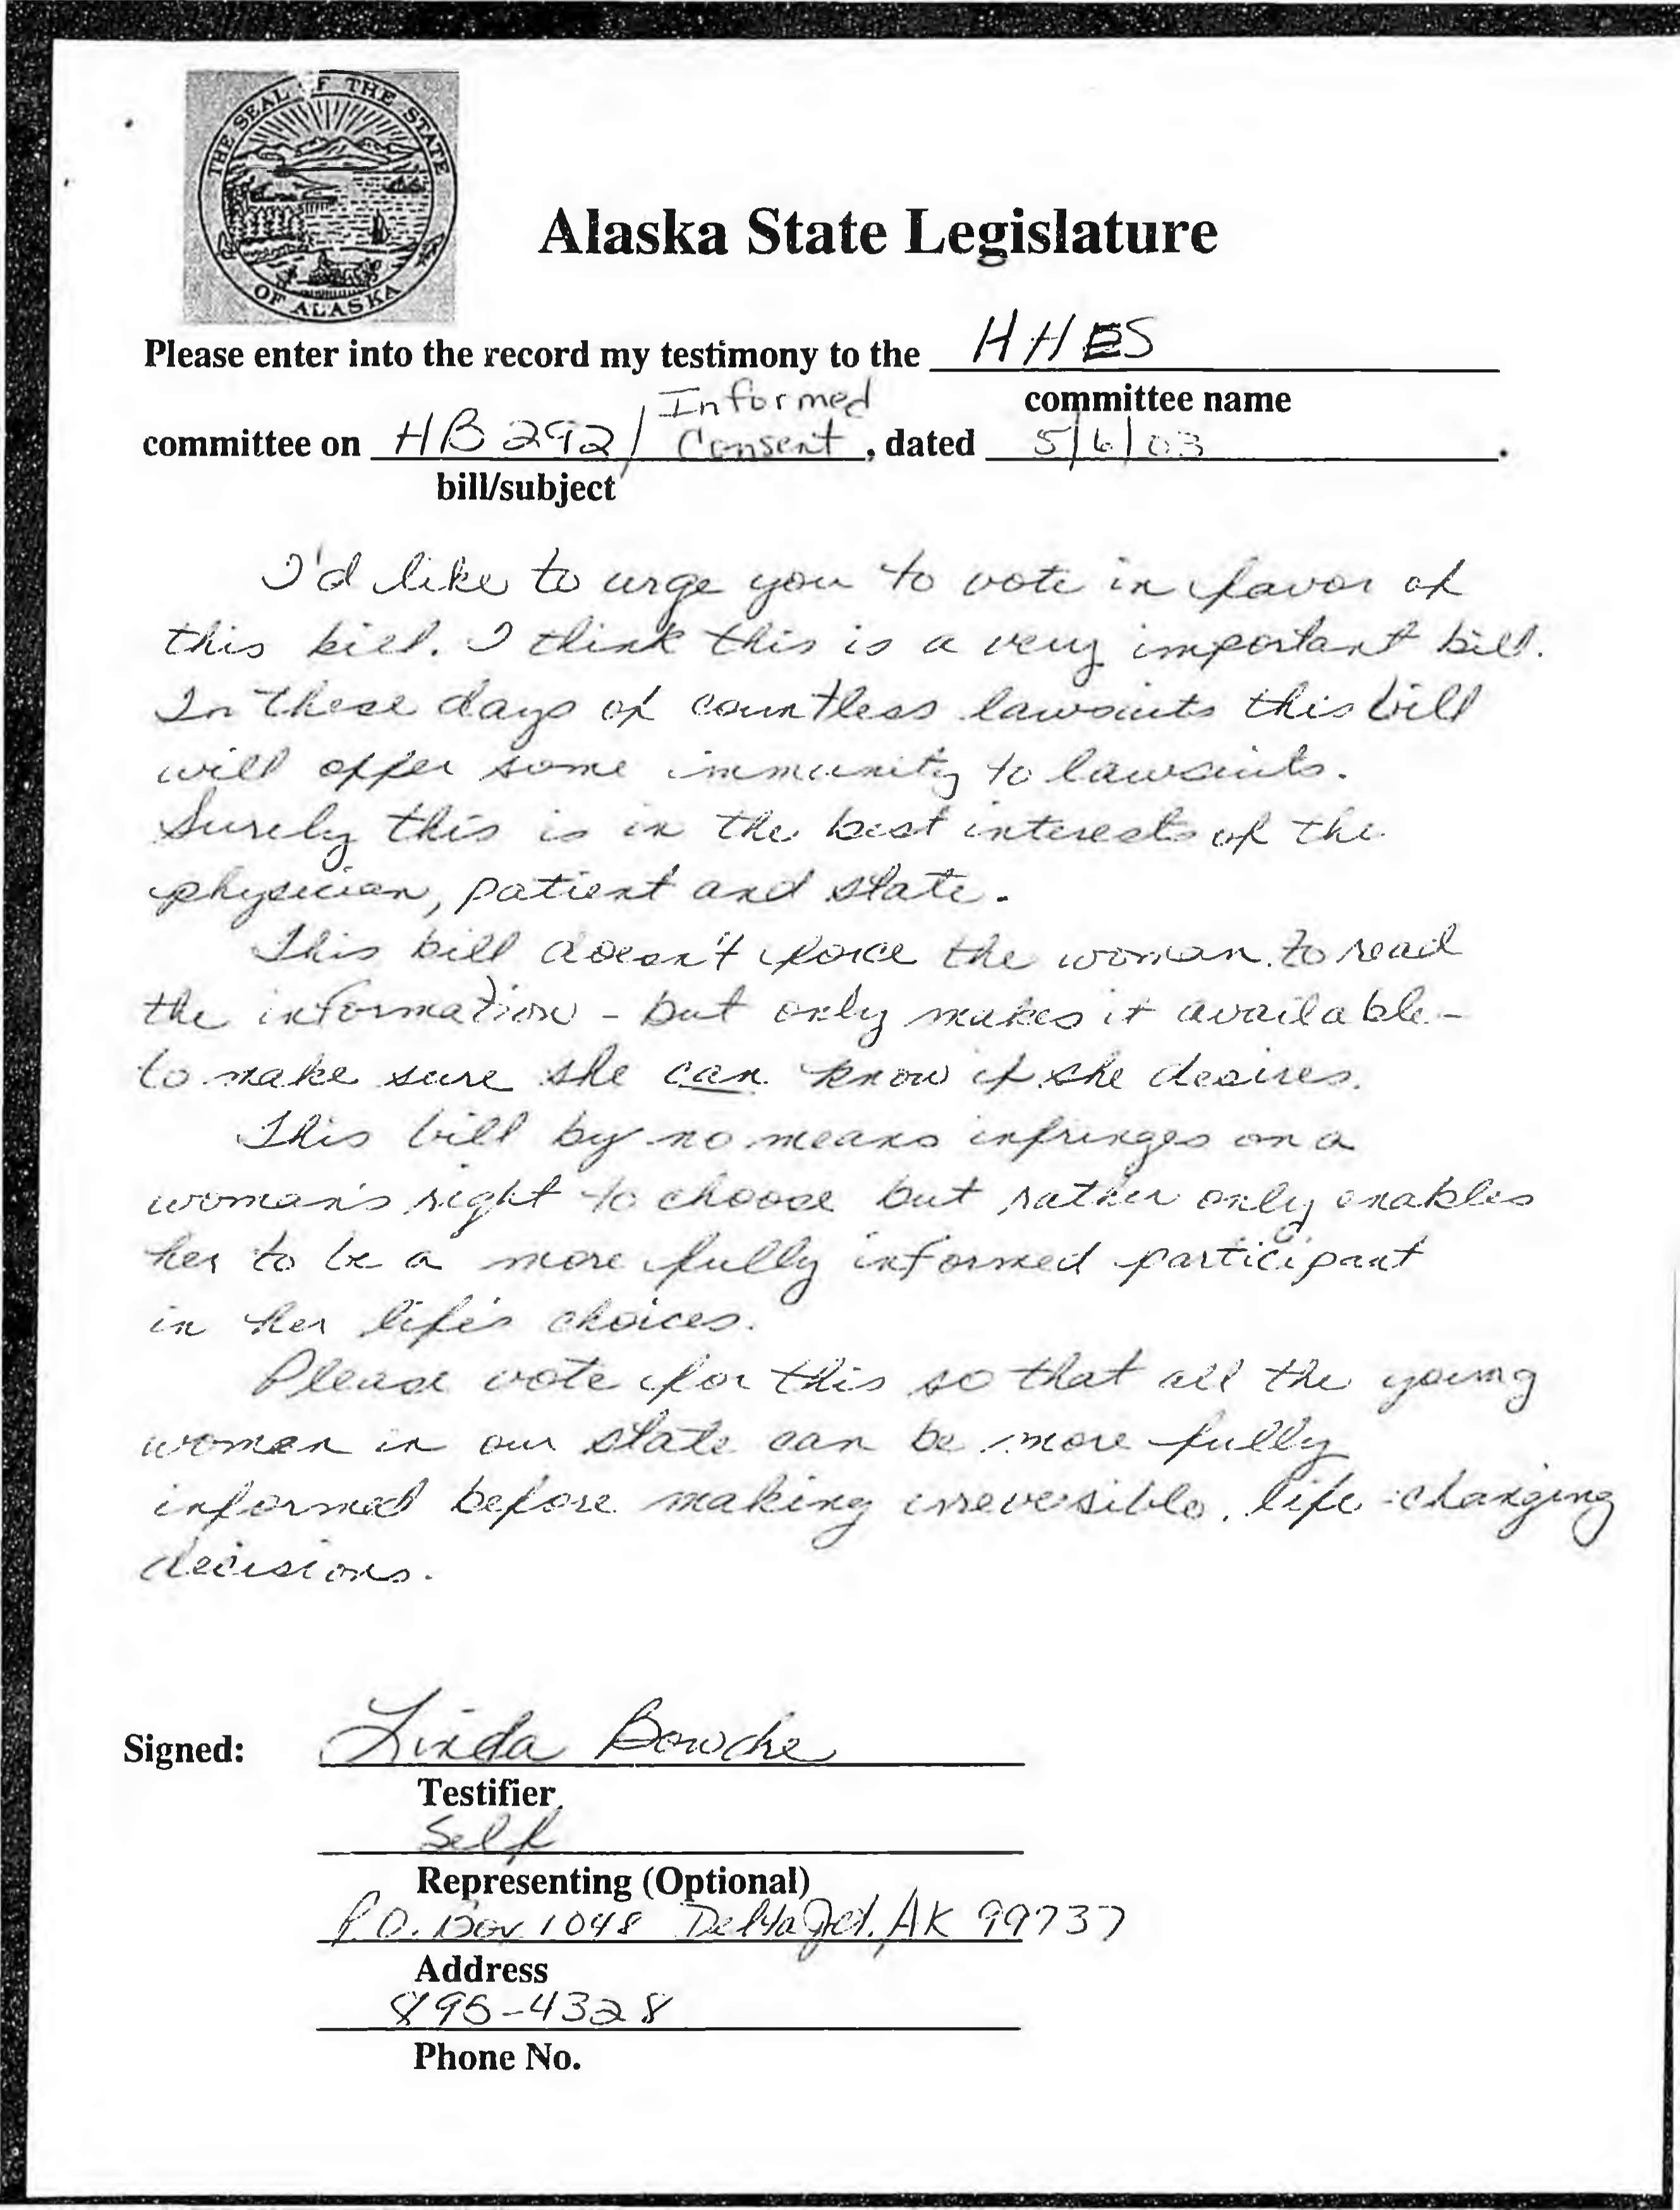 THE SEAL OF THE STATE OF ALASKA
Alaska State Legislature
Please enter into the record my testimony to the HHES
committee name
Informed
committee on HB 292/ Consent, dated 5/6/03.
bill/subject
I'd like to urge you to vote in favor of
this bill. I think this is a very important bill.
In these days of countless lawsuits this bill
will offer some immunity to lawsuits.
Surely this is in the best interests of the
physician, patient and state.
This bill doesn't force the woman to read
the information - but only makes it available -
to make sure she can know if she desires.
This bill by no means infringes on a
woman's right to choose but rather only enables
her to be a more fully informed participant
in her life's choices.
Please vote for this so that all the young
women in our state can be more fully
informed before making irreversible, life-changing
decisions.
Signed: Linda
Testifier
Self
Representing (Optional)
P.O. Box 1048 Delta Jct. AK 99737
Address
895-4328
Phone No.